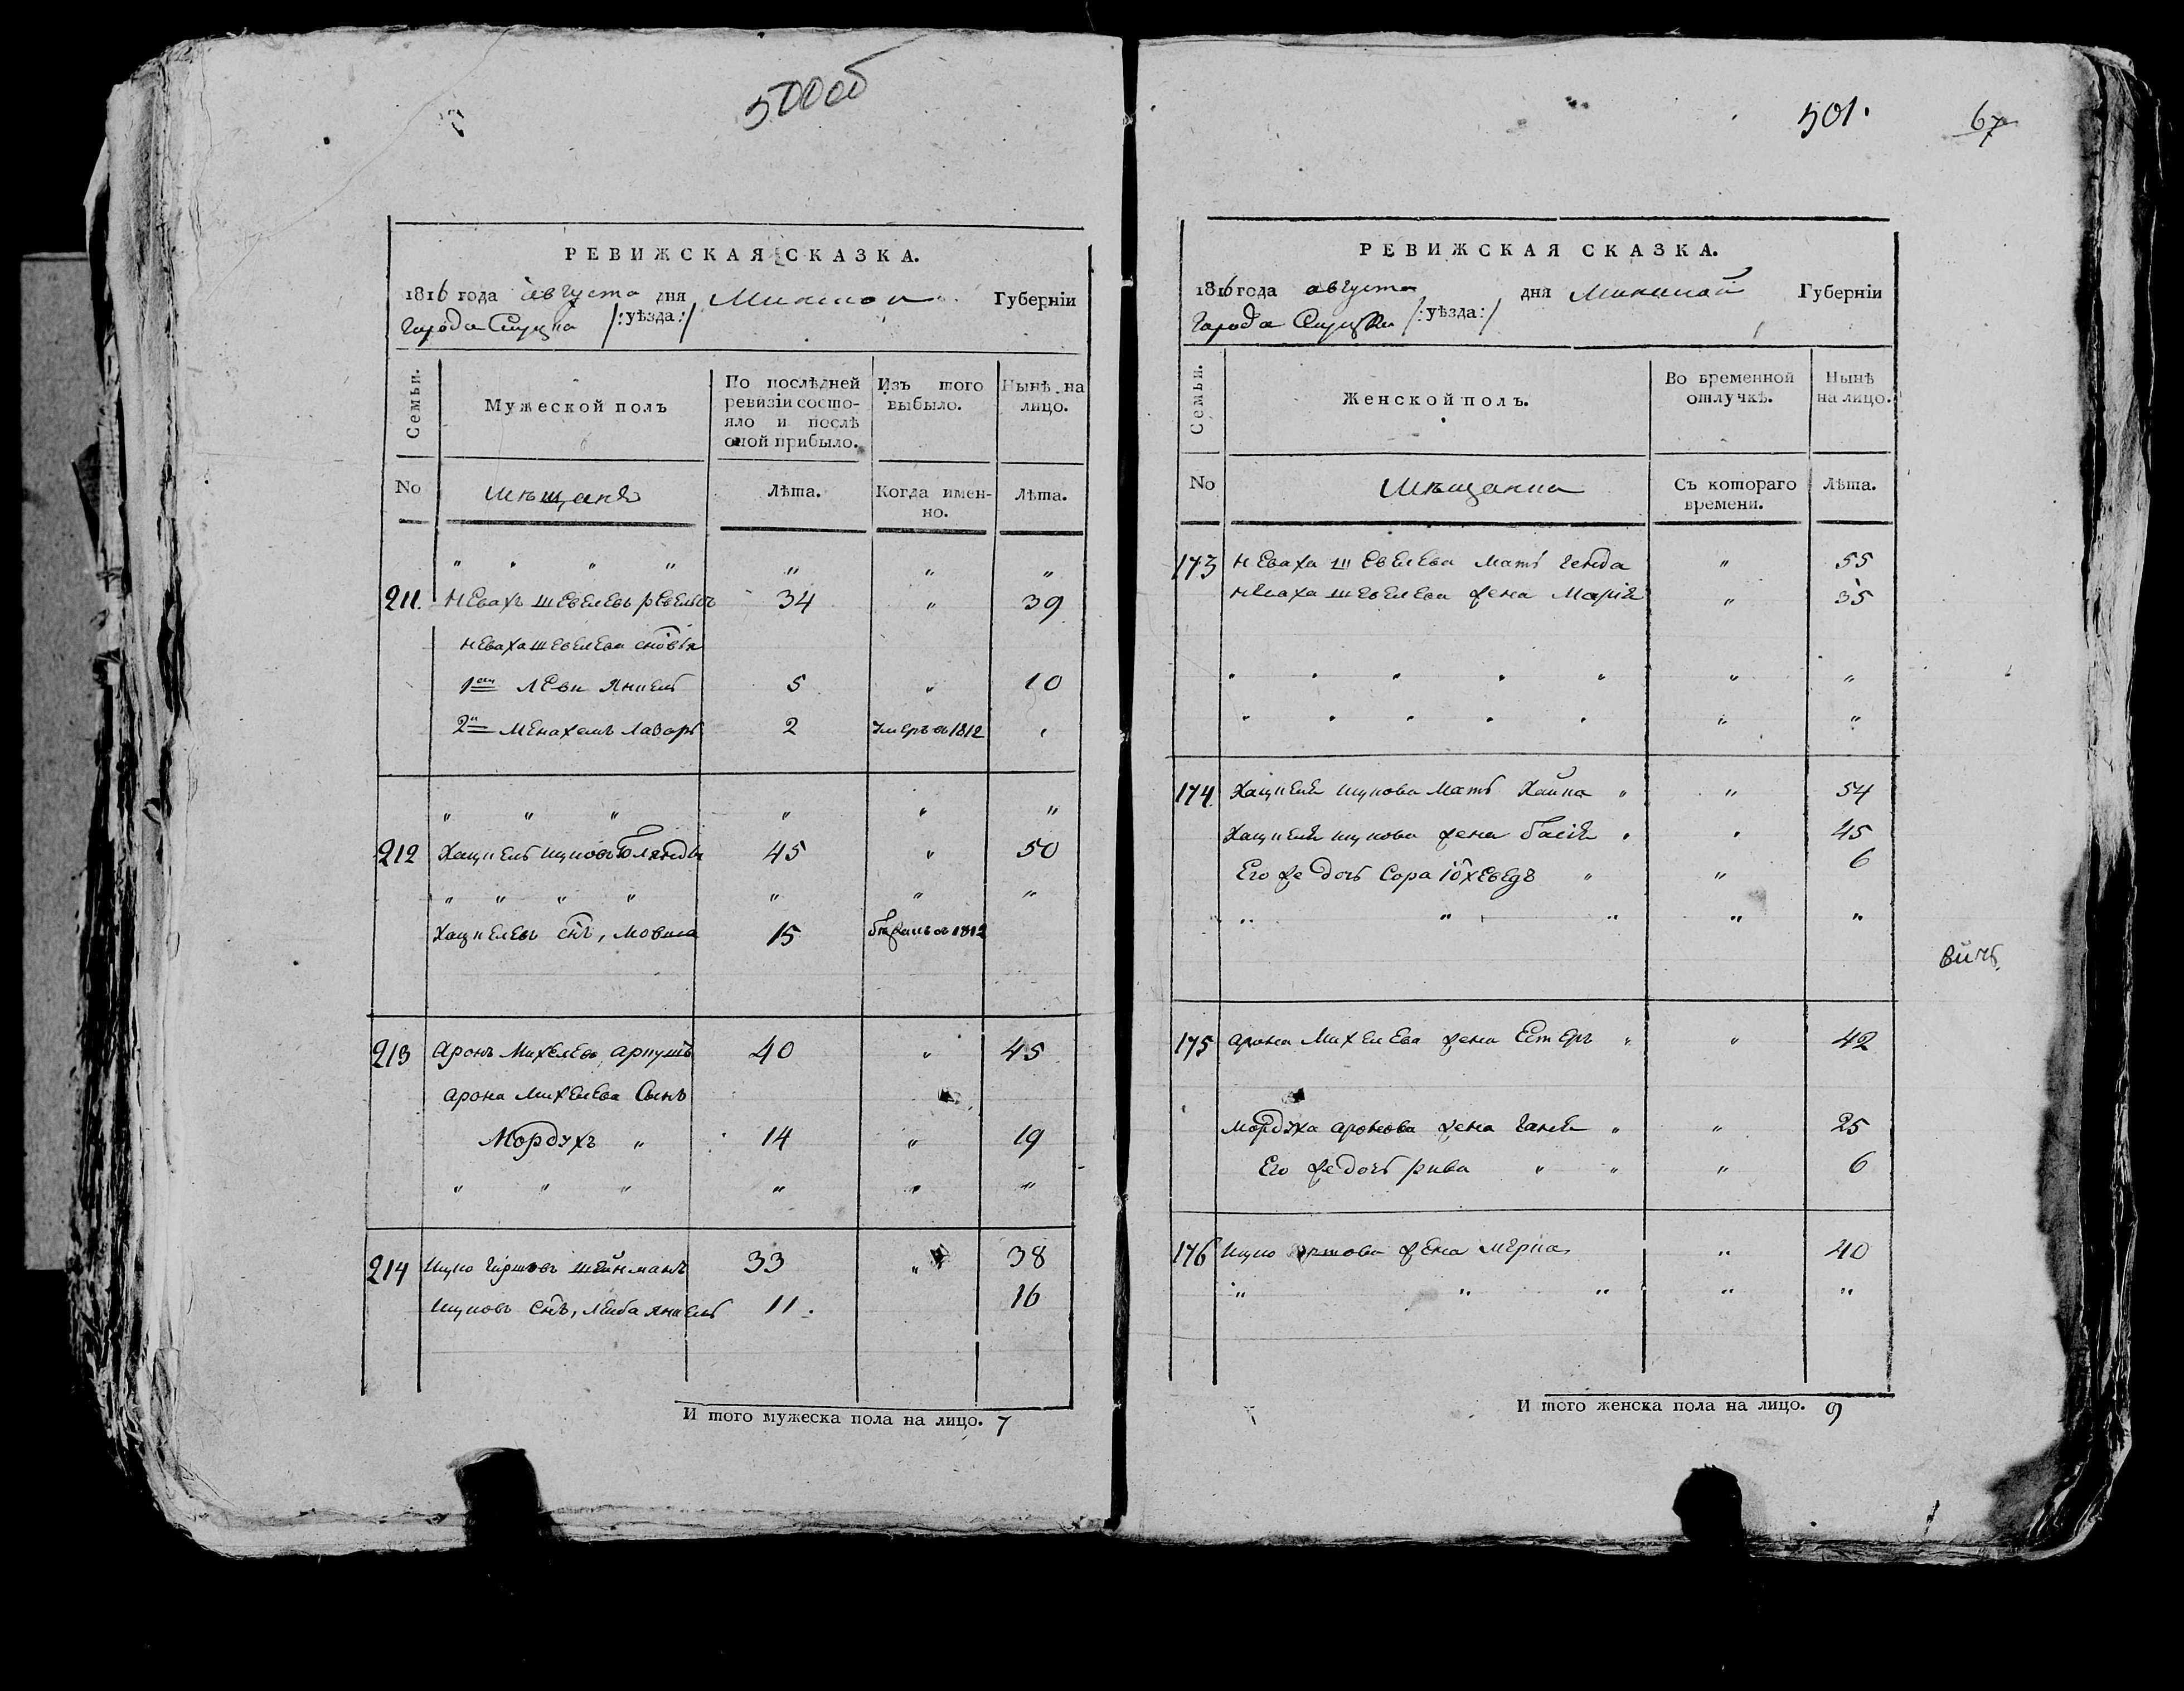 500об
РЕВИЖСКАЯ СКАЗКА.
1816 года августа дня Минской Губерніи
Города Слуцка /:уѣзда:/
Семьи.
Мужеской полъ
По послѣдней ревизіи состо-
яло и послѣ
оной прибыло.
Изъ того
выбыло.
Нынѣ на
лицо.
No
мѣщане
Лѣта.
Когда имен-
но.
Лѣта.
" " " " " " "
211. Невахъ шевелевъ 34 " 39
Неваха шевелева сновья
1й Леви Янкель 5 " 10
2й Менахемъ Лазарь 2 Умеръ в 1812 "
" " " " " "
212 Хацкель ицковъ 45 " 50
" " " " " " "
Хацкелевъ снъ, Мовша 15 в 1812
213 Аронъ Михелевъ 40 " 45
Арона Михелева Сынъ
Мордухъ " 14 " 19
" " " " " "
214 Ицко Гиршовъ шейнманъ 33 " 38
Ицковъ Снъ, Лейба Янкель 11. 16
И того мужеска пола на лицо. 7
501.
67
РЕВИЖСКАЯ СКАЗКА.
1816 года августа дня Минской Губерніи
Города Слуцка /:уѣзда:/
Семьи.
Женской полъ.
Во временной
отлучкѣ.
Нынѣ
на лицо.
No
Мѣщанки
Съ котораго
времени.
Лѣта.
173 Неваха шевелева мать Генда " 55
Неваха шевелева жена Марія " 35
" " " " " " "
" " " " " " "
174. Хацкеля ицкова мать Хайка " " 54
Хацкеля ицкова жена Бася " " 45
Его же дочь Сора Іохеведъ " " 6
" " " " "
вичъ.
175 Арона Михелева жена Естеръ " " 42
Мордуха аронова жена Ганя " " 25
Его же дочь рива " " " 6
176 Ицко жена мерка " 40
" " " " "
И того женска пола на лицо. 9